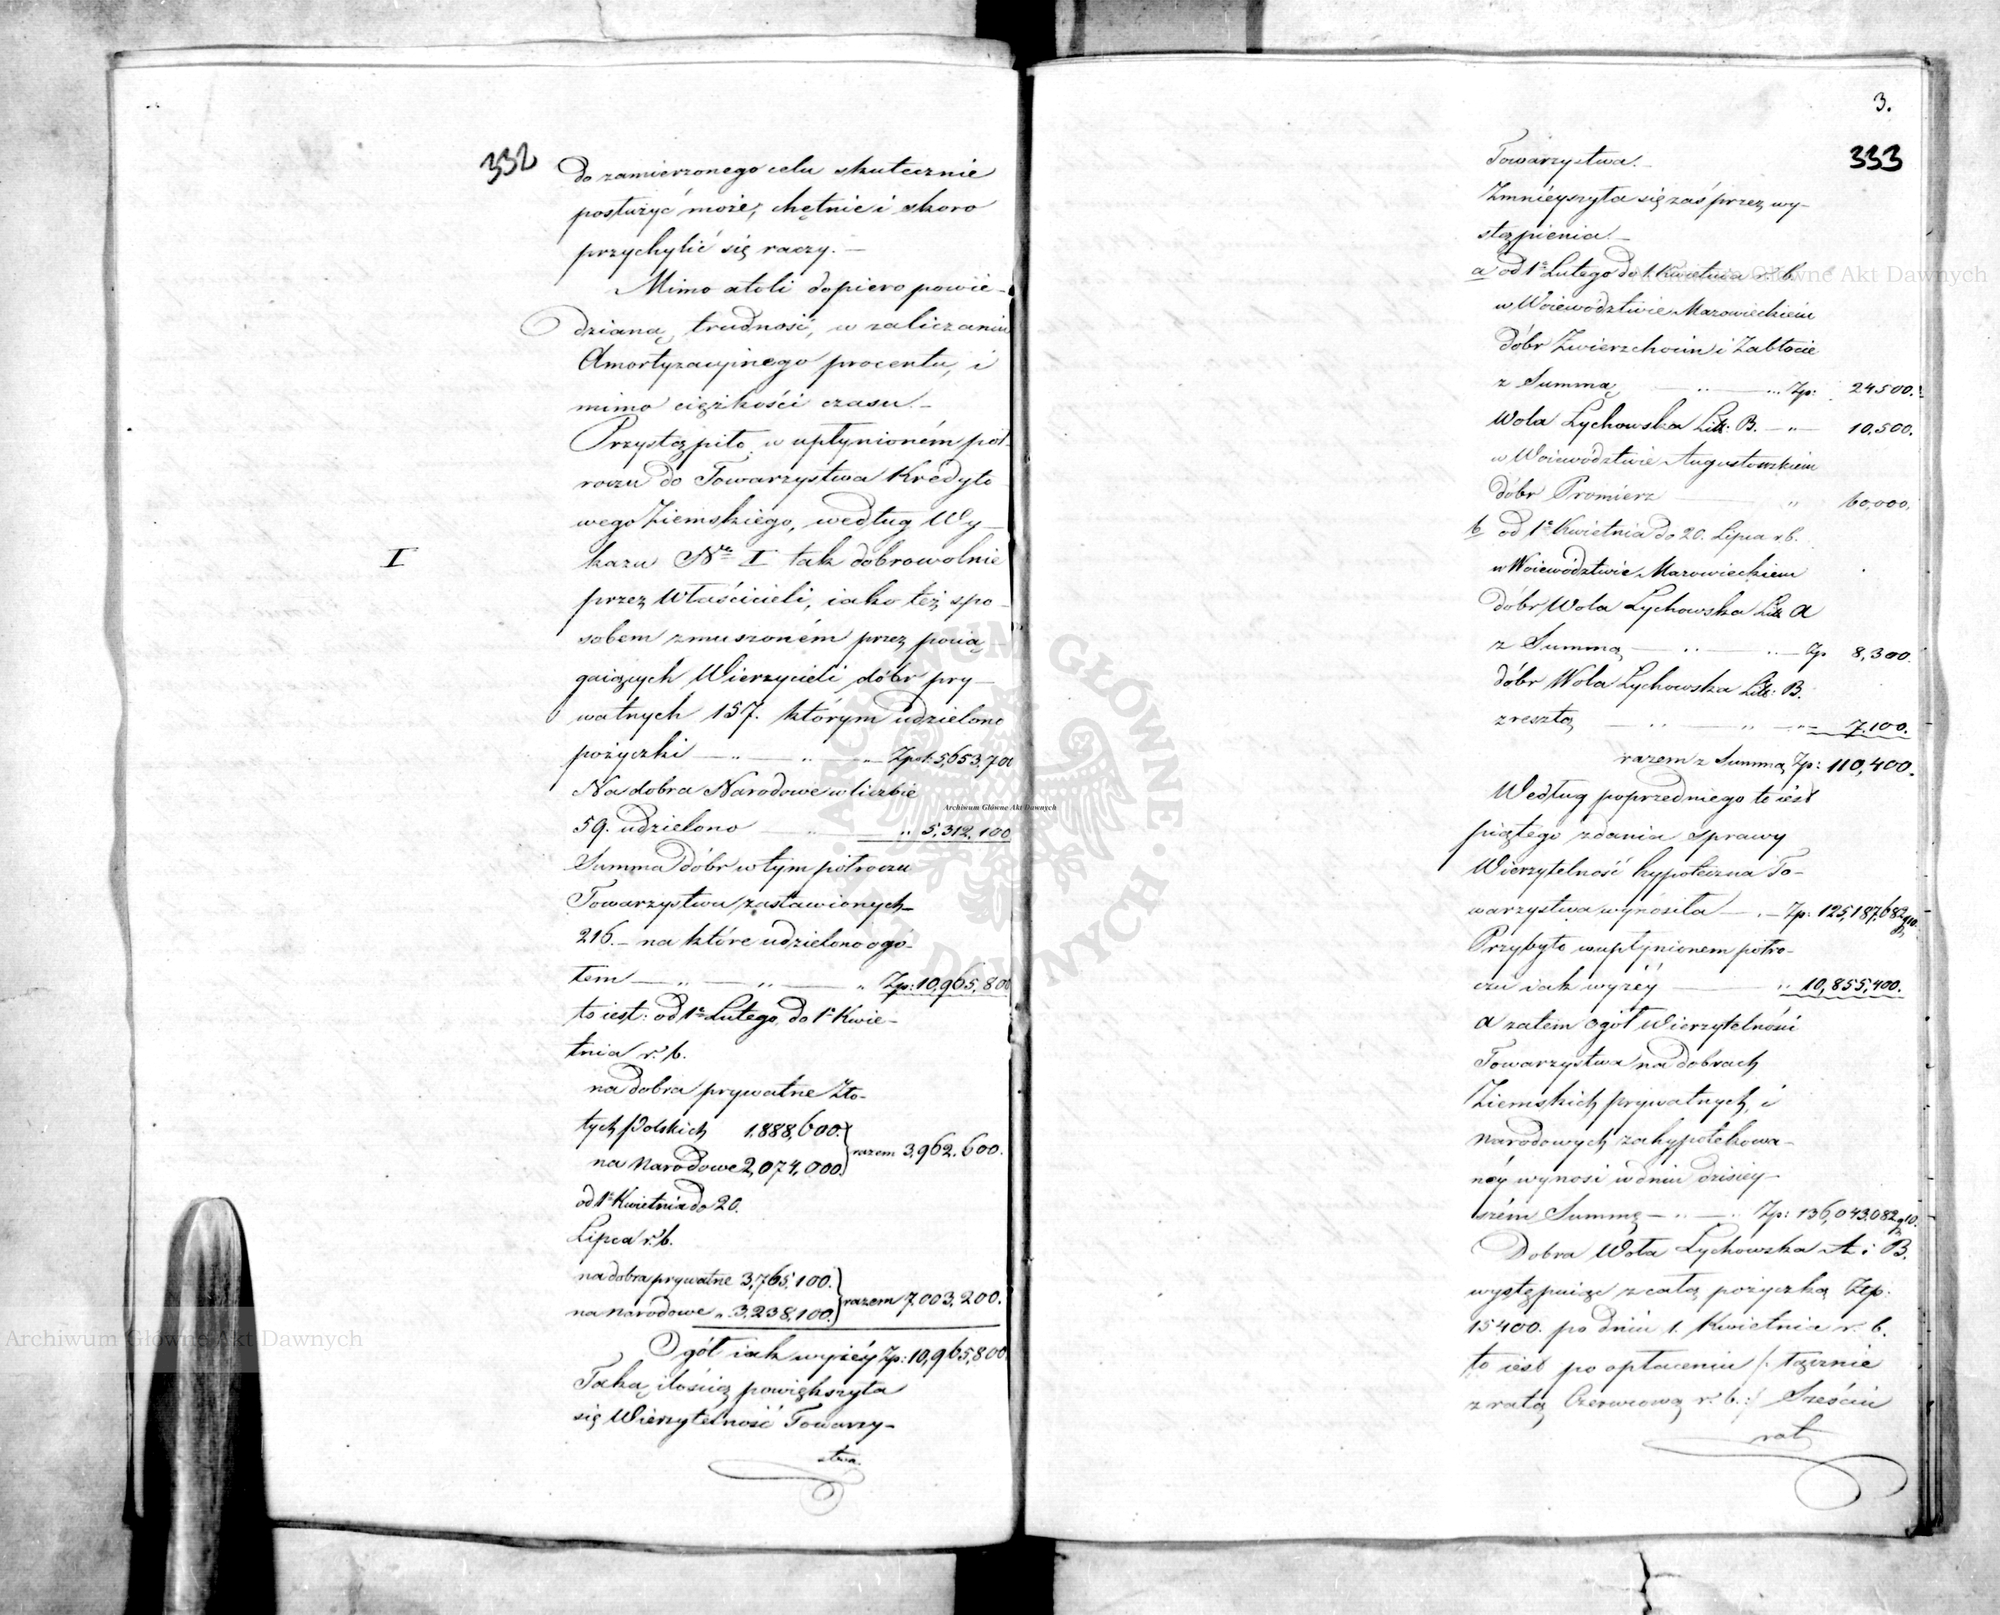 332
do zamierzonego celu skutecznie
posłużyć może, chętnie i skoro
przychylić się raczy. —
Mimo atoli dopiero powie-
dzianą trudność, w zaliczaniu
Amortyzacyinego procentu, i
mimo ciężkości czasu. —
Przystąpiło w upłynioném pół-
roczu do Towarzystwa Kredyto
wego Ziemskiego, według Wy-
I
kazu Nro I tak dobrowolnie
przez Właścicieli, iako też spo-
sobem zmuszoném przez pocią-
gaiących Wierzycieli dóbr pry-
watnych 157. którym udzielono
pożyczki — „ — „ — „ Zpol: 5,653,700
Na dobra Narodowe w liczbie
59. udzielono — „ — „ 5,312,100
Summa dóbr w tym półroczu
Towarzystwu zastawionych
216. — na które udzielono ogó-
łem — „ — „ — „ Zp: 10,965,800
to iest: od 1o Lutego do 1o Kwie-
tnia r. b.
na dobra prywatne Zło-
tych Polskich 1,888,600.
na Narodowe 2,074,000. } razem 3,962,600.
od 1o Kwietnia do 20.
Lipca r. b.
na dobra prywatne 3,765,100.
na Narodowe „ 3,238,100. } razem 7,003,200.
Ogół iak wyżéy Zp: 10,965,800
Taką ilością powiększyła
się Wierzytelność Towarzy-
stwa.
3.
333
Towarzystwa. —
Zmnieyszyła się zaś przez wy-
stąpienia. —
a od 1o Lutego do 1. Kwietnia r. b.
w Woiewództwie Mazowieckiem
dóbr Zwierzchocin i Zabłocie
z Summą — „ — „ Zp: 24500.
Wola Lychowska Litt: B. — „ — 10,500.
w Woiewództwie Augustowskiem
dóbr Promierz — „ 60,000.
b od 1o Kwietnia do 20. Lipca r. b.
w Woiewództwie Mazowieckiem
dóbr Wola Lychowska Litt A
z Summą — „ — „ — Zp 8,300.
dóbr Wola Lychowska Litt: B.
z resztą — „ — „ — „ 7,100.
razem z Summą Zp: 110,400.
Według poprzedniego to iest
piątego zdania sprawy
Wierzytelność hypoteczna To-
warzystwa wynosiła — „ — Zp: 125,187,682 g 10.
Przybyło w upłynionem półro-
czu iak wyżéy — „ 10,855,400.
a zatem ogół Wierzytelności
Towarzystwa na dobrach
Ziemskich prywatnych, i
Narodowych zahypotekowa-
néy wynosi w dniu dzisiey-
szém Summę — „ — „ Zp: 136,043,082 g 10.
Dobra Wola Lychowska A i B.
występuiąc z całą pożyczką Złp:
15400. po dniu 1. Kwietnia r. b.
to iest po opłaceniu /: łącznie
z ratą Czerwcową r. b. :/ Sześciu
rat
Archiwum Główne Akt Dawnych
Archiwum Główne Akt Dawnych
Archiwum Główne Akt Dawnych
ARCHIWUM GŁÓWNE · AKT DAWNYCH ·